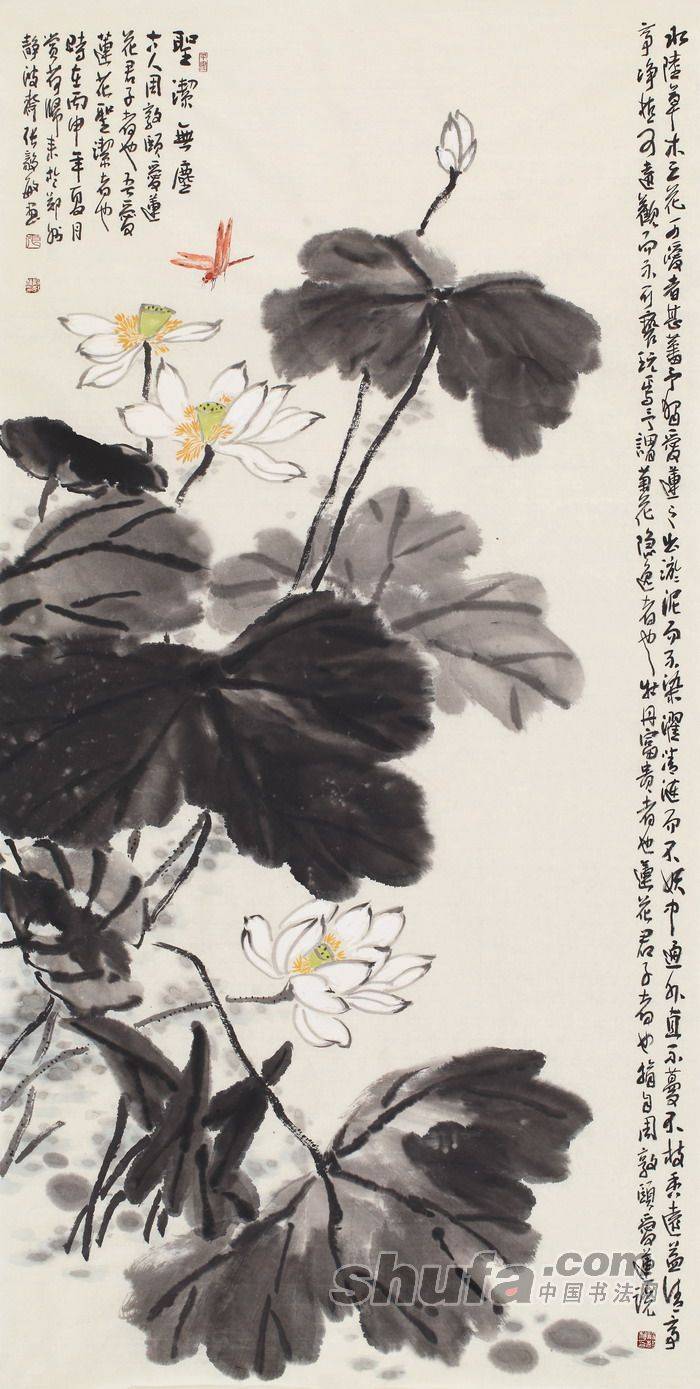 水陸草木之花可愛者甚蕃予獨愛蓮之出淤泥而不染濯清漣而不妖中通外直不蔓不枝香遠益清亭
亭净植可遠觀而不可褻玩焉予謂菊花隱逸者也牡丹富貴者也蓮花君子者也摘自周敦頤愛蓮說
聖潔無塵
古人周敦頤愛蓮
花君子者也吾愛
蓮花聖潔者也
時在丙申年夏月
賞荷歸來於鄭州
靜波齋張毅敏畫
shufa.com
中国书法网